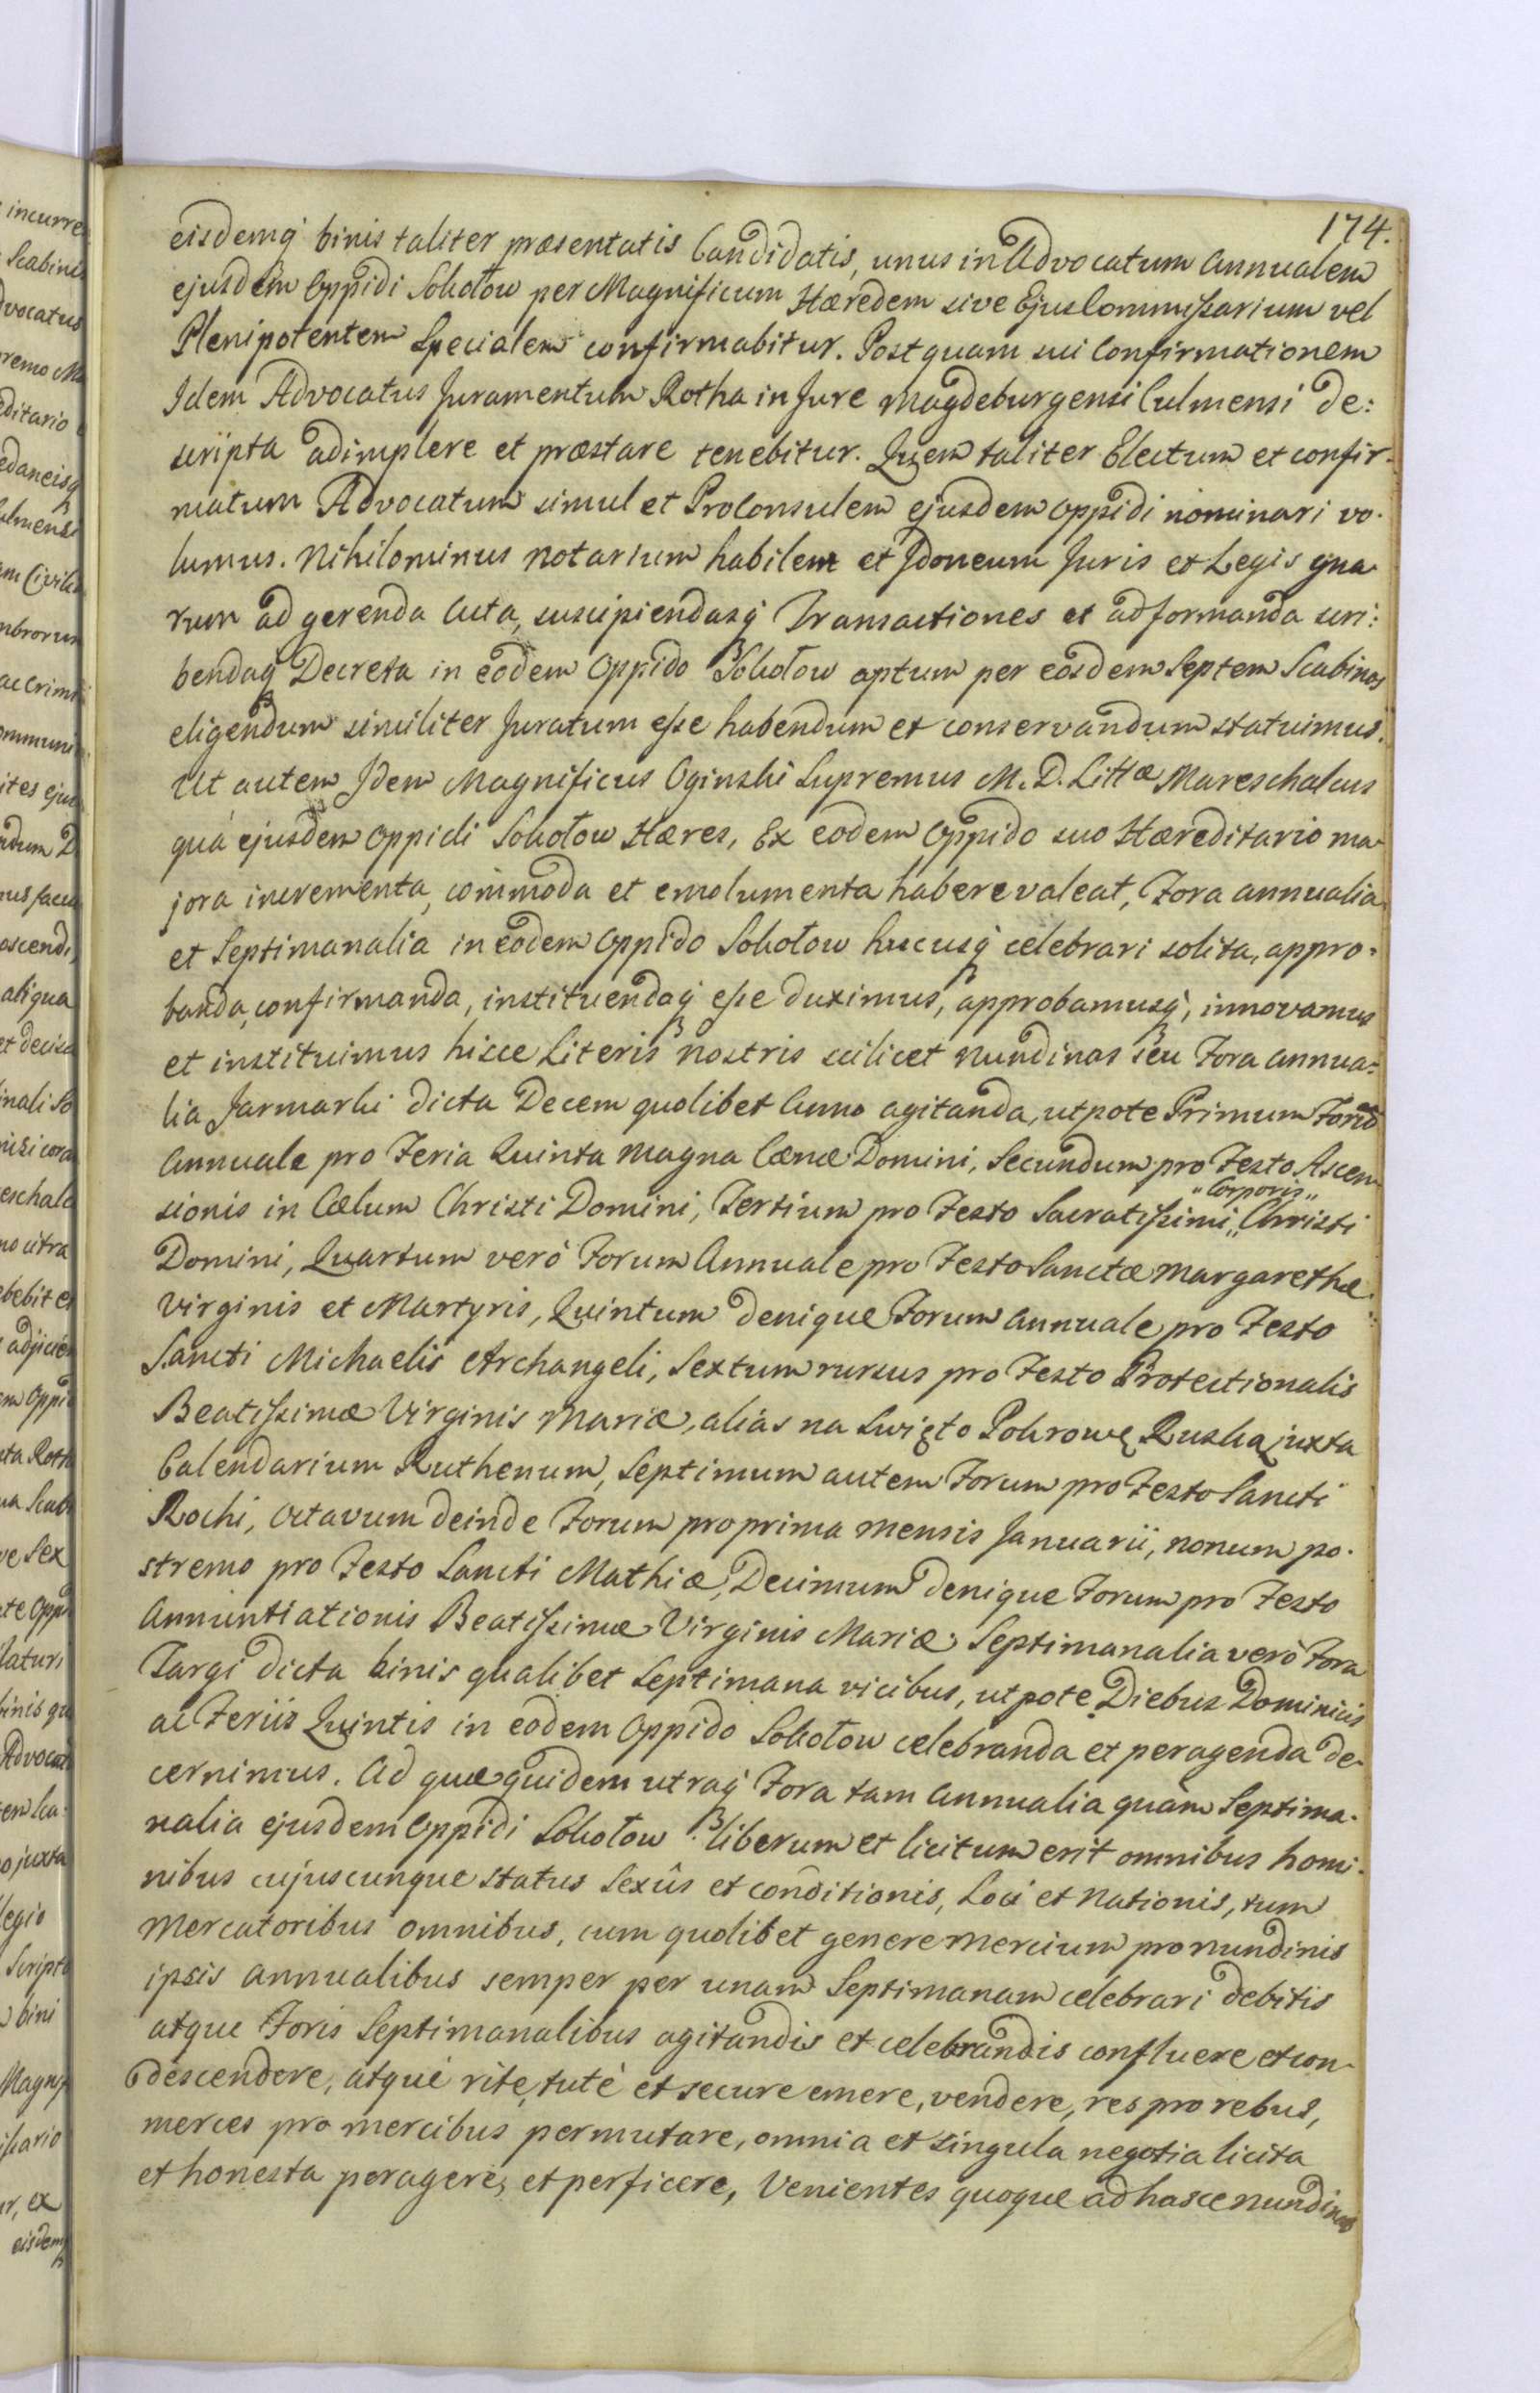 174.
eisdemq binis taliter præsentatis Candidatis, unus in Advocatum Annualem
ejusdem Oppidi Sokołow per Magnificum Hæredem sive Ejus Commissarium vel
Plenipotentem Specialem confirmabitur. Post quam sui Confirmationem
Idem Advocatus Juramentum Rotha in Jure Magdeburgensi Culmensi de:
scripta adimplere et præstare tenebitur. Quem taliter Electum et confir-
matum Advocatum simul et ProConsulem ejusdem Oppidi nominari vo-
lumus. Nihilominus Notarium habilem et Idoneum Juris et Legis gna
rum ad gerenda Acta, suscipiendasq Transactiones et ad formanda scri:
bendaq Decreta in eodem Oppido Sokołow aptum per eosdem Septem Scabinos
eligendum similiter Juratum esse habendum et conservandum statuimus.
Ut autem Idem Magnificus Oginski Supremus M. D. Littæ Mareschalcus
quà ejusdem Oppidi Sokołow Hæres, Ex eodem Oppido suo Hæreditario ma-
jora incrementa, commoda et emolumenta habere valeat, Fora annualia
et Septimanalia in eodem Oppido Sokołow hucusq celebrari solita, appro-
banda, confirmanda, instituendaq esse duximus, approbamusq, innovamus
et instituimus hisce Literis nostris scilicet Nundinas seu Fora Annua-
lia Jarmarki dicta Decem quolibet Anno agitanda, utpote Primum Forũ
Annuale pro Feria Quinta magna Cænæ Domini, Secundum pro Festo Ascen
sionis in Cælum Christi Domini, Tertium pro Festo Sacratissimi "Corporis" Christi
Domini, Quartum verò Forum Annuale pro Festo Sanctæ Margarethæ
Virginis et Martyris, Quintum denique Forum Annuale pro Festo
Sancti Michaelis Archangeli, Sextum rursus pro Festo Protectionalis
Beatissimæ Virginis Mariæ, aliàs na Swięto Pokrowę Ruską juxta
Calendarium Ruthenum, Septimum autem Forum pro Festo Sancti
Rochi, Octavum deinde Forum pro prima Mensis Januarii, nonum po-
stremo pro Festo Sancti Mathiæ, Decimum denique Forum pro Festo
Annuntiationis Beatissimæ Virginis Mariæ; Septimanalia verò Fora
Targi dicta binis qualibet Septimana vicibus, utpote Diebus Dominicis
ac Feriis Quintis in eodem Oppido Sokołow celebranda et peragenda de-
cernimus. Ad quæ quidem utraq Fora tam Annualia quàm Septima-
nalia ejusdem Oppidi Sokołow liberum et licitum erit omnibus homi-
nibus cujuscunque status Sexûs et conditionis, Loci et Nationis, tum
Mercatoribus omnibus, cum quolibet genere Mercium pro nundinis
ipsis Annualibus semper per unam Septimanam celebrari debitis
atque Foris Septimanalibus agitandis et celebrandis confluere et con-
descendere, atque rite, tutè et secure emere, vendere, res pro rebus,
merces pro mercibus permutare, omnia et singula negotia licita
et honesta peragere, et perficere, Venientes quoque ad hasce nundinas